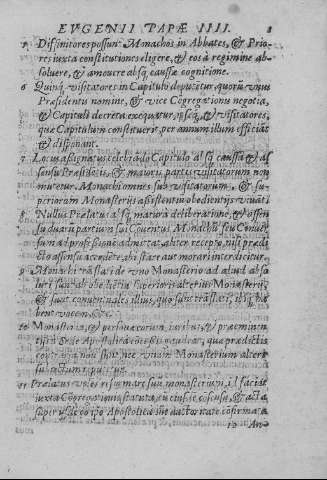 EVGENII PAPÆ IIII. 8
5 Diffinitores possunt Monachos in Abbates, & Prio-
res iuxta constitutiones eligere, & eos à regimine ab-
soluere, & amouere absq; caussæ cognitione.
6 Quinq; visitatores in Capitulo deputetur, quorũ vnus
Præsidentis nomine, & vice Cõgregationis negotia,
& Capituli decreta exequatur, ipsiq; & visitatores,
quæ Capitulum constituerit, per annum illum efficiãt
& disponant.
7 Locus assignatus celebrãdo Capitulo absq; caussa & as
sensu Præsidetis, & maioris partis visitatorum non
mutetur. Monachi omnes sub visitatorum, & su-
periorum Monasterij assistentiu obedientijs viuãt
8 Nullus Prælatus absq; matura deliberatione, & assen
su duarũ partium sui Couentus Monachũ seu Conuer
sum ad professionẽ admittat, aliter recepto, nisi prædi
cto assensu accedẽte, ibi stare aut morari interdicitur.
9 Monachi trãslati de vno Monasterio ad aliud abso
luti sunt ab obedietia superioris alterius Monasterij,
& sunt conuentuales illius, quo sunt trãslati, ibiq; ha
bent vocem, &c.
10 Monasteria, & personæ eorum iuribus, & præminen
tijs in Sede Apostolica cõcessis gaudeat, quæ prædictis
contraria non sint nec vnum Monasterium alteri
subiectum
11 Prælatus monasterium, id faciat
iuxta Cõgregationis statuta, cũ eiusdẽ cõsesu, & acta
super ipso Apostolica auctoritate cõfirmata
12 Ano